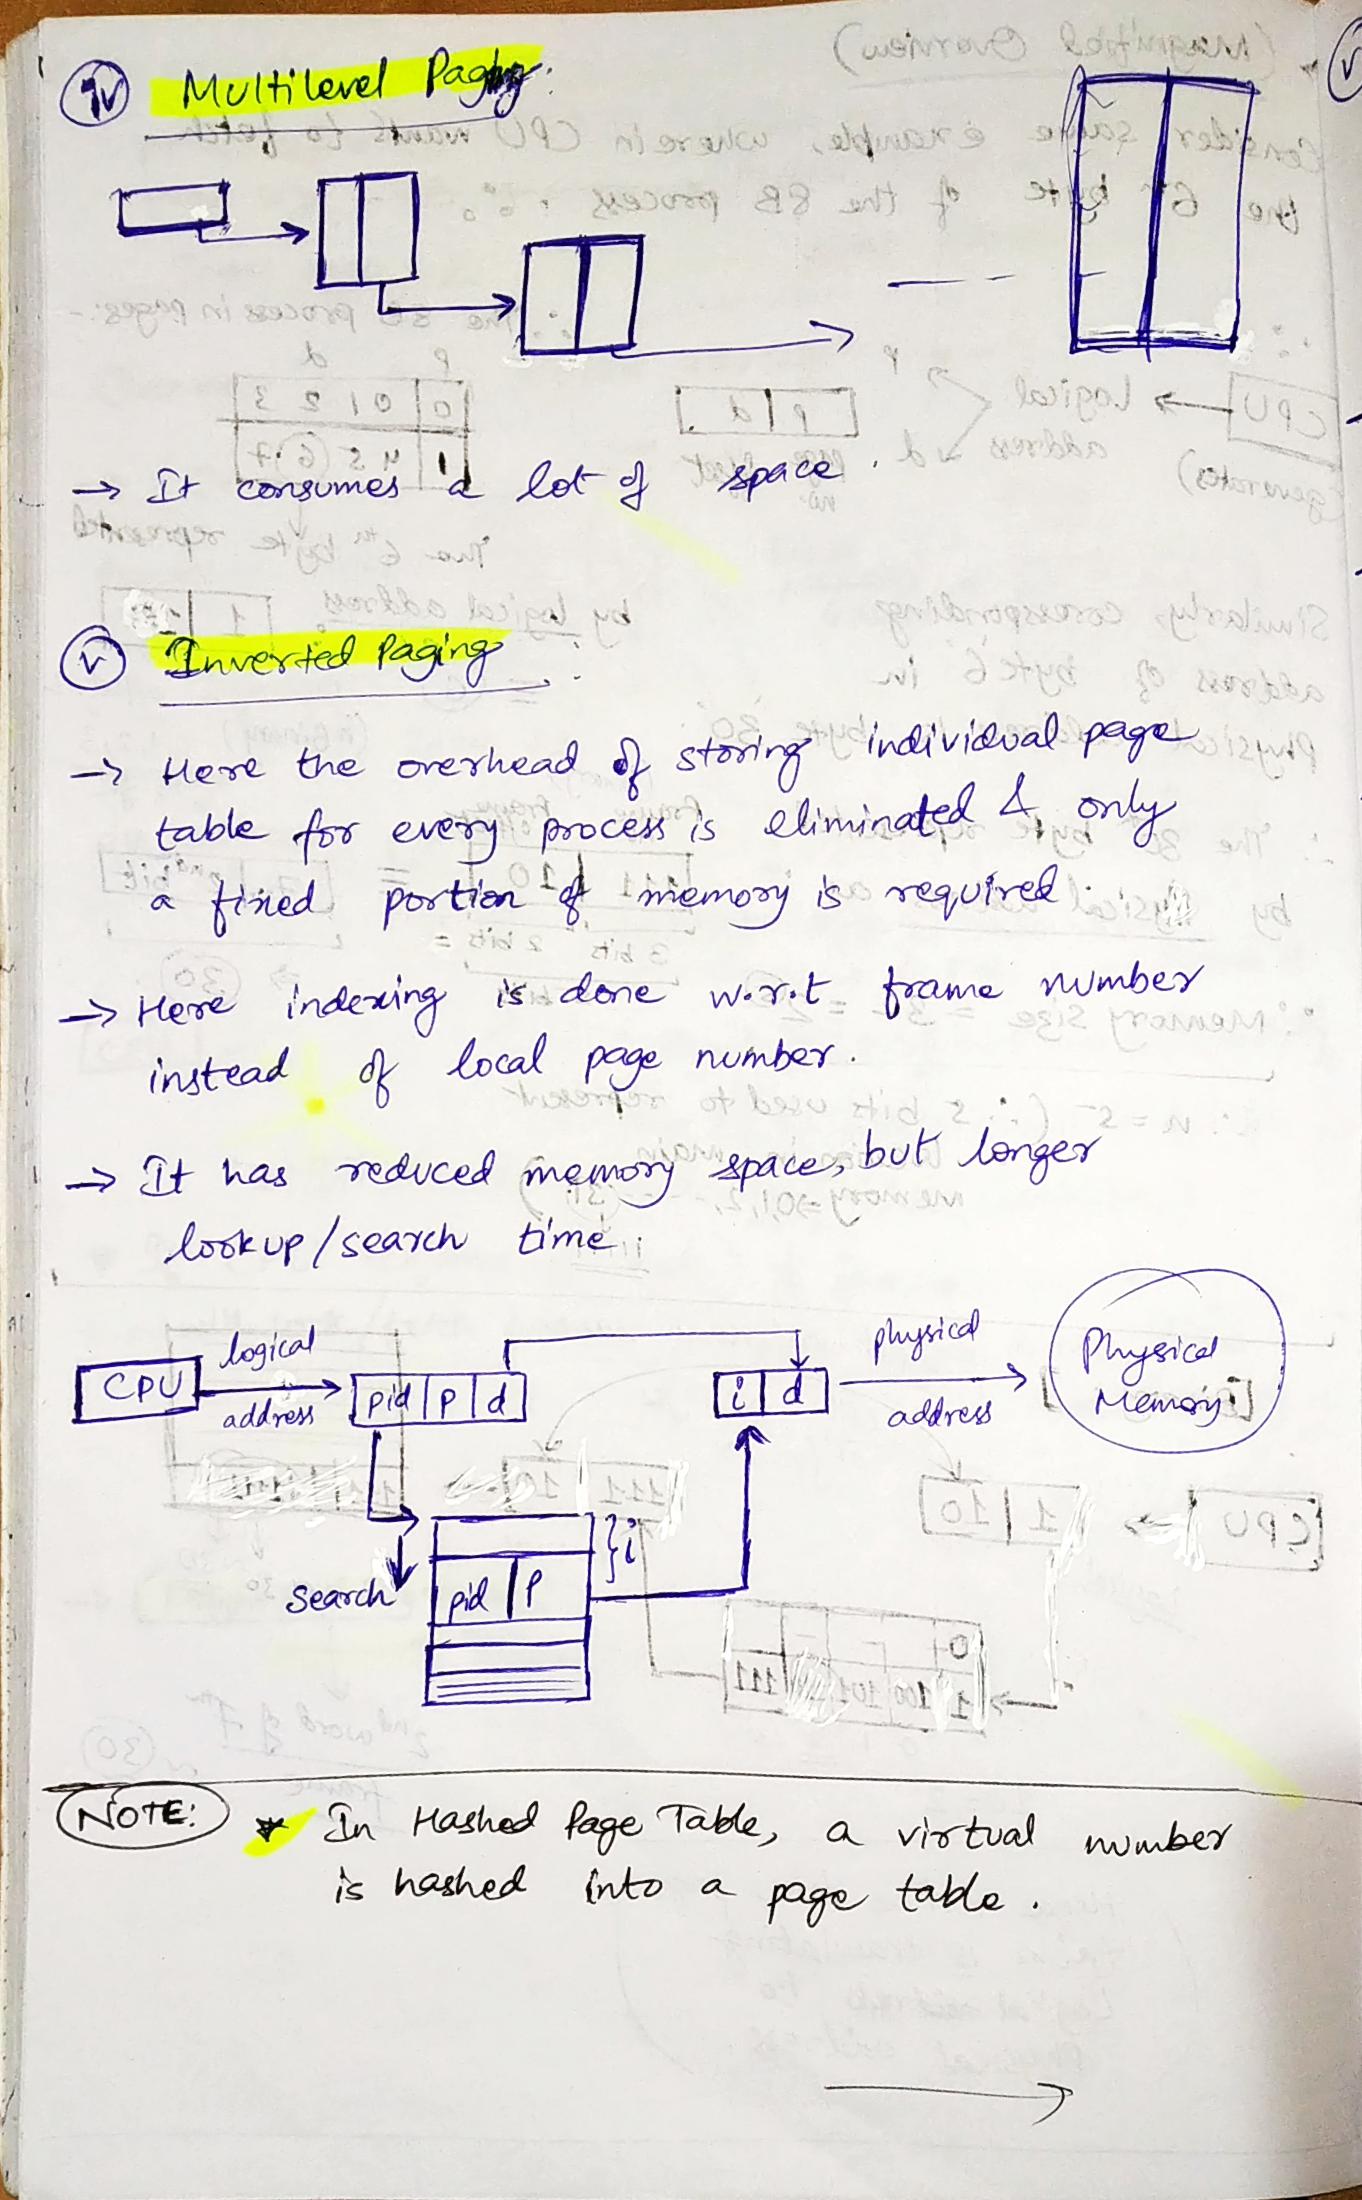 iv Multilevel Paging:
→ It consumes a lot of space.
v Inverted Paging:
→ Here the overhead of storing individual page
table for every process is eliminated & only
a fixed portion of memory is required.
→ Here indexing is done w.r.t frame number
instead of local page number.
→ It has reduced memory space, but longer
lookup/search time.
CPU logical address pid p d i d physical address Physical Memory
Search pid p } i
NOTE: * In Hashed Page Table, a virtual number
is hashed into a page table.